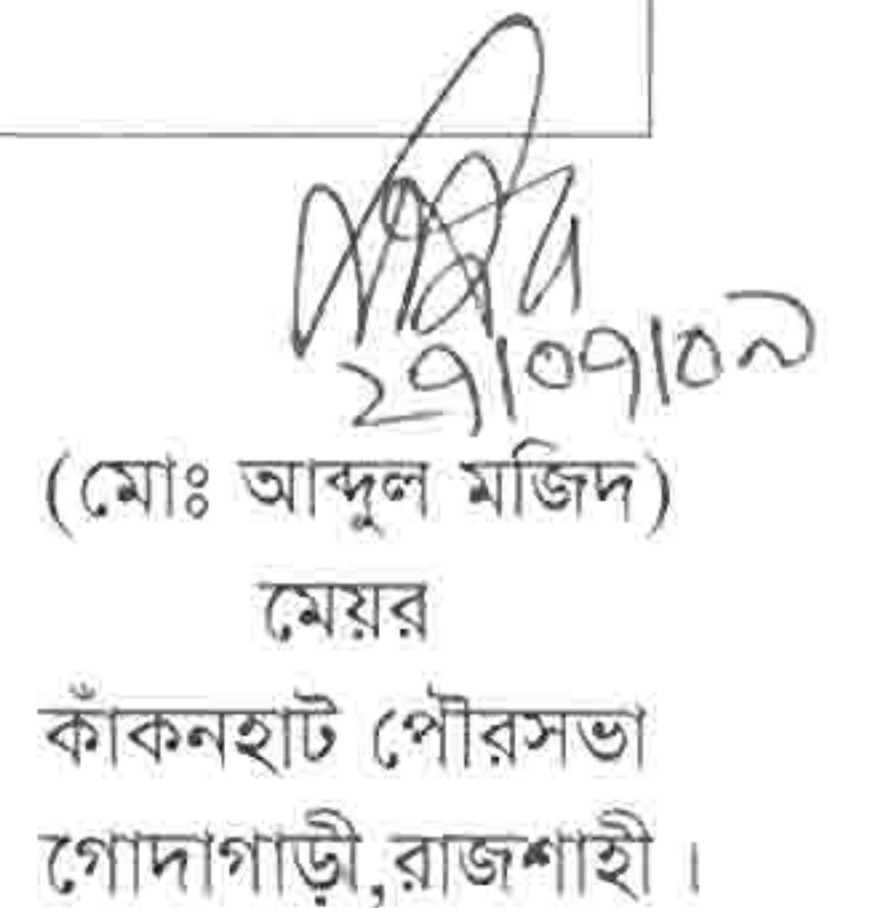 ২৭/০৭/০৯
(মোঃ আব্দুল মজিদ)
মেয়র
কাঁকনহাট পৌরসভা
গোদাগাড়ী,রাজশাহী ।